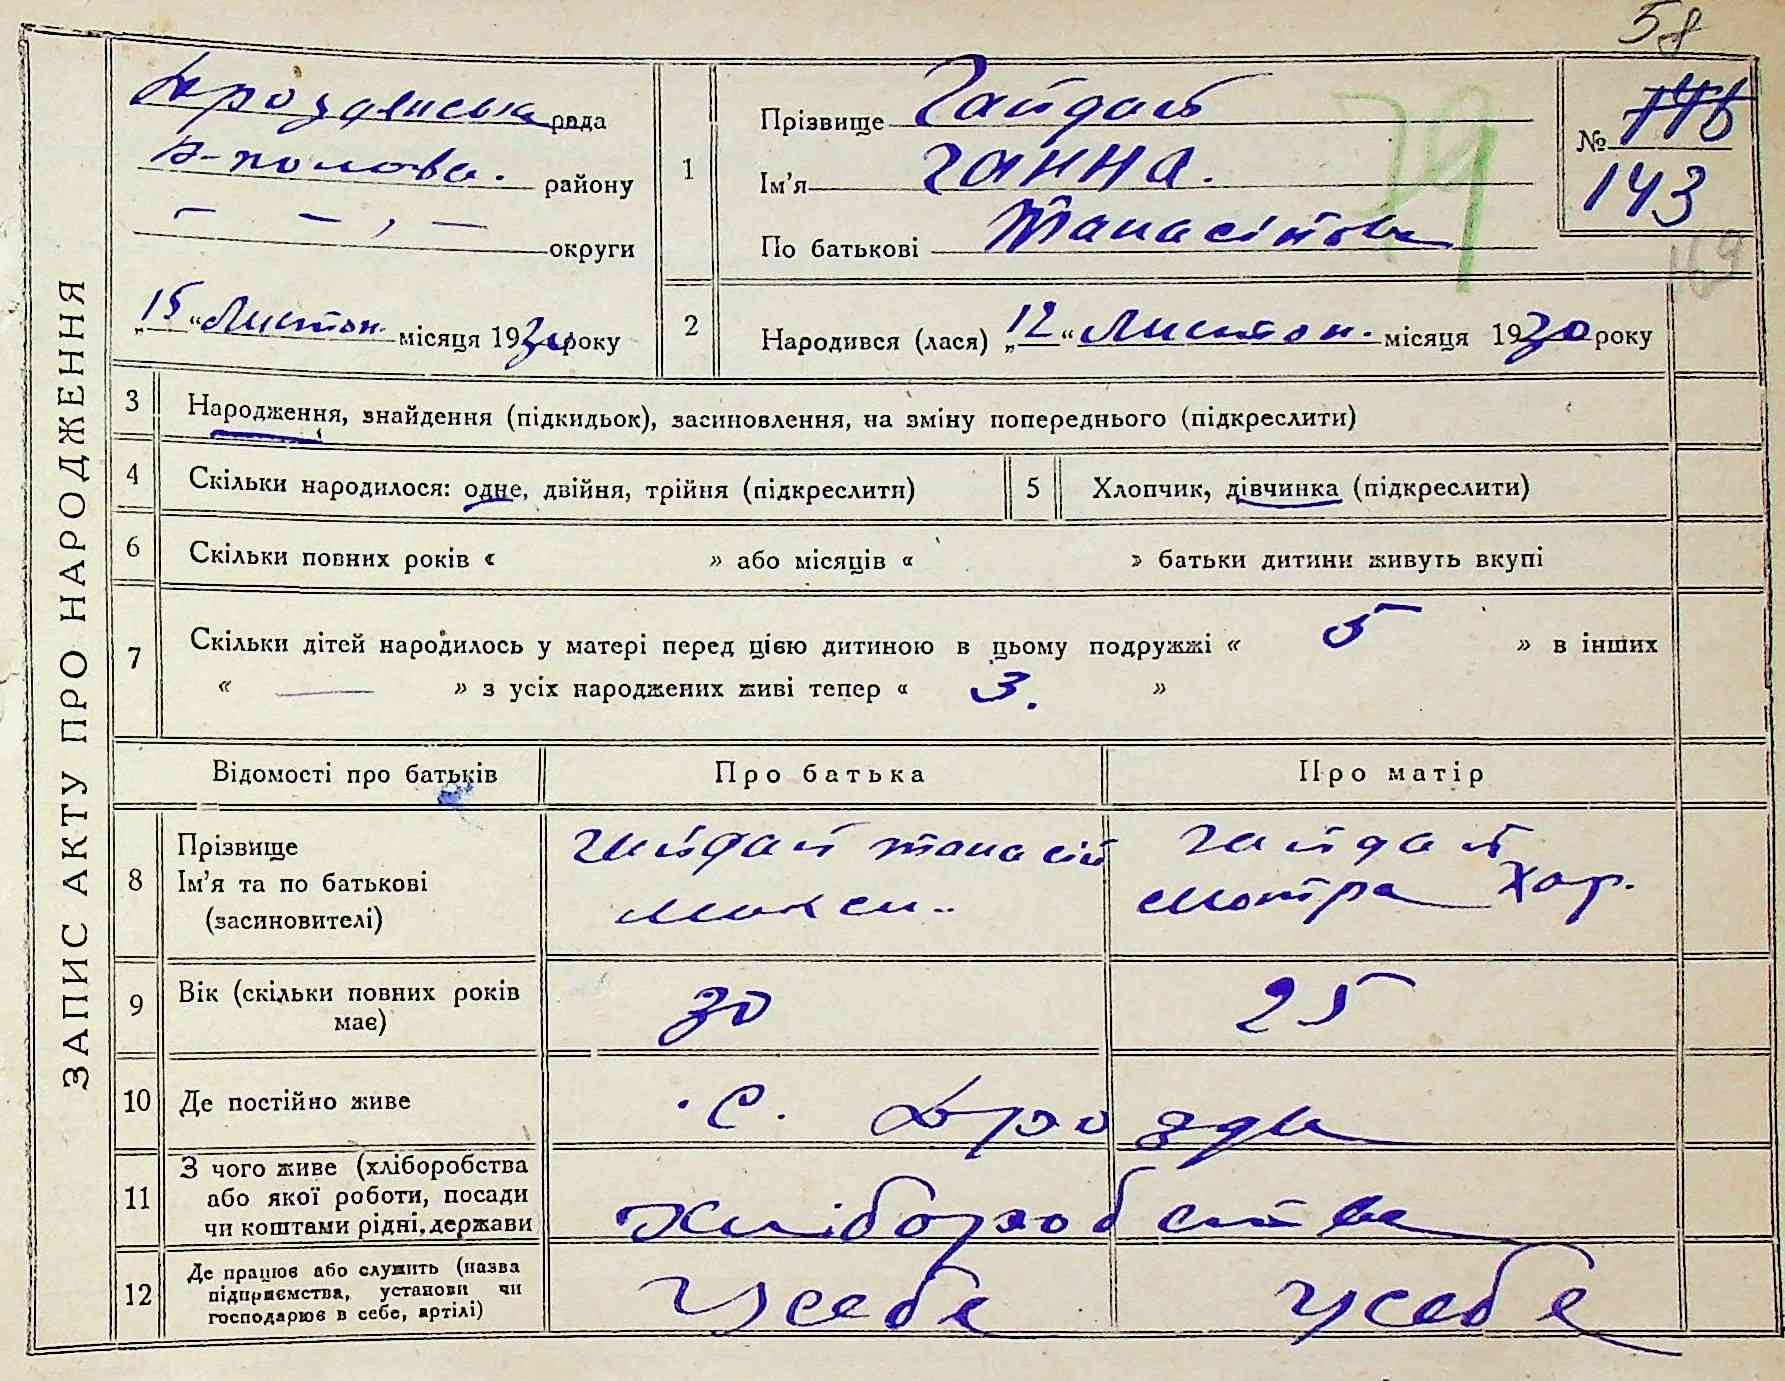 58
ЗАПИС АКТУ ПРО НАРОДЖЕННЯ
Дроздянська рада
района
округи
„15“ Листоп. місяця 1930 року
1
Прізвище Гайдай
Ім'я Ганна.
По батькові Танасійовна
№ 776
143
79
169
2
Народився (лася) „12“ Листоп. місяця 1930 року
3
Народження, знайдення (підкидьок), засиновлення, на зміну попереднього (підкреслити)
4
Скільки народилося: одне, двійня, трійня (підкреслити)
5
Хлопчик, дівчинка (підкреслити)
6
Скільки повних років « » або місяців « » батьки дитини живуть вкупі
7
Скільки дітей народилось у матері перед цією дитиною в цьому подружжі « 5 » в інших
« — » з усіх народжених живі тепер « 3. »
Відомості про батьків
Про батька
Про матір
8
Прізвище
Ім'я та по батькові
(засиновителі)
Гайдай Танасій
Макси..
Гайдай
Мотря Хар.
9
Вік (скільки повних років
має)
30
25
10
Де постійно живе
с. Дрозди
11
З чого живе (хліборобства
або якої роботи, посади
чи коштами рідні, держави
Хліборобства
12
Де працює або служить (назва
підприємства, установи чи
господарює в себе, артілі)
У себе
У себе